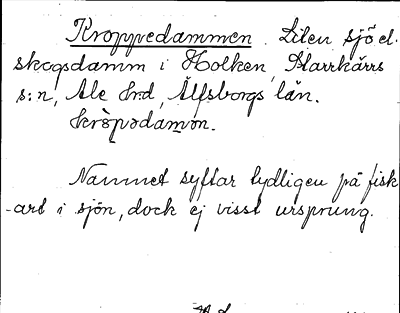 Kroppedammen. Liten sjö el.
skogsdamm i Holken, Starrkärrs
s:n, Ale Hrd, Älfsborgs län.
kròpədamən.
Namnet syftar tydligen på fisk
-art i sjön, dock ej visst ursprung.